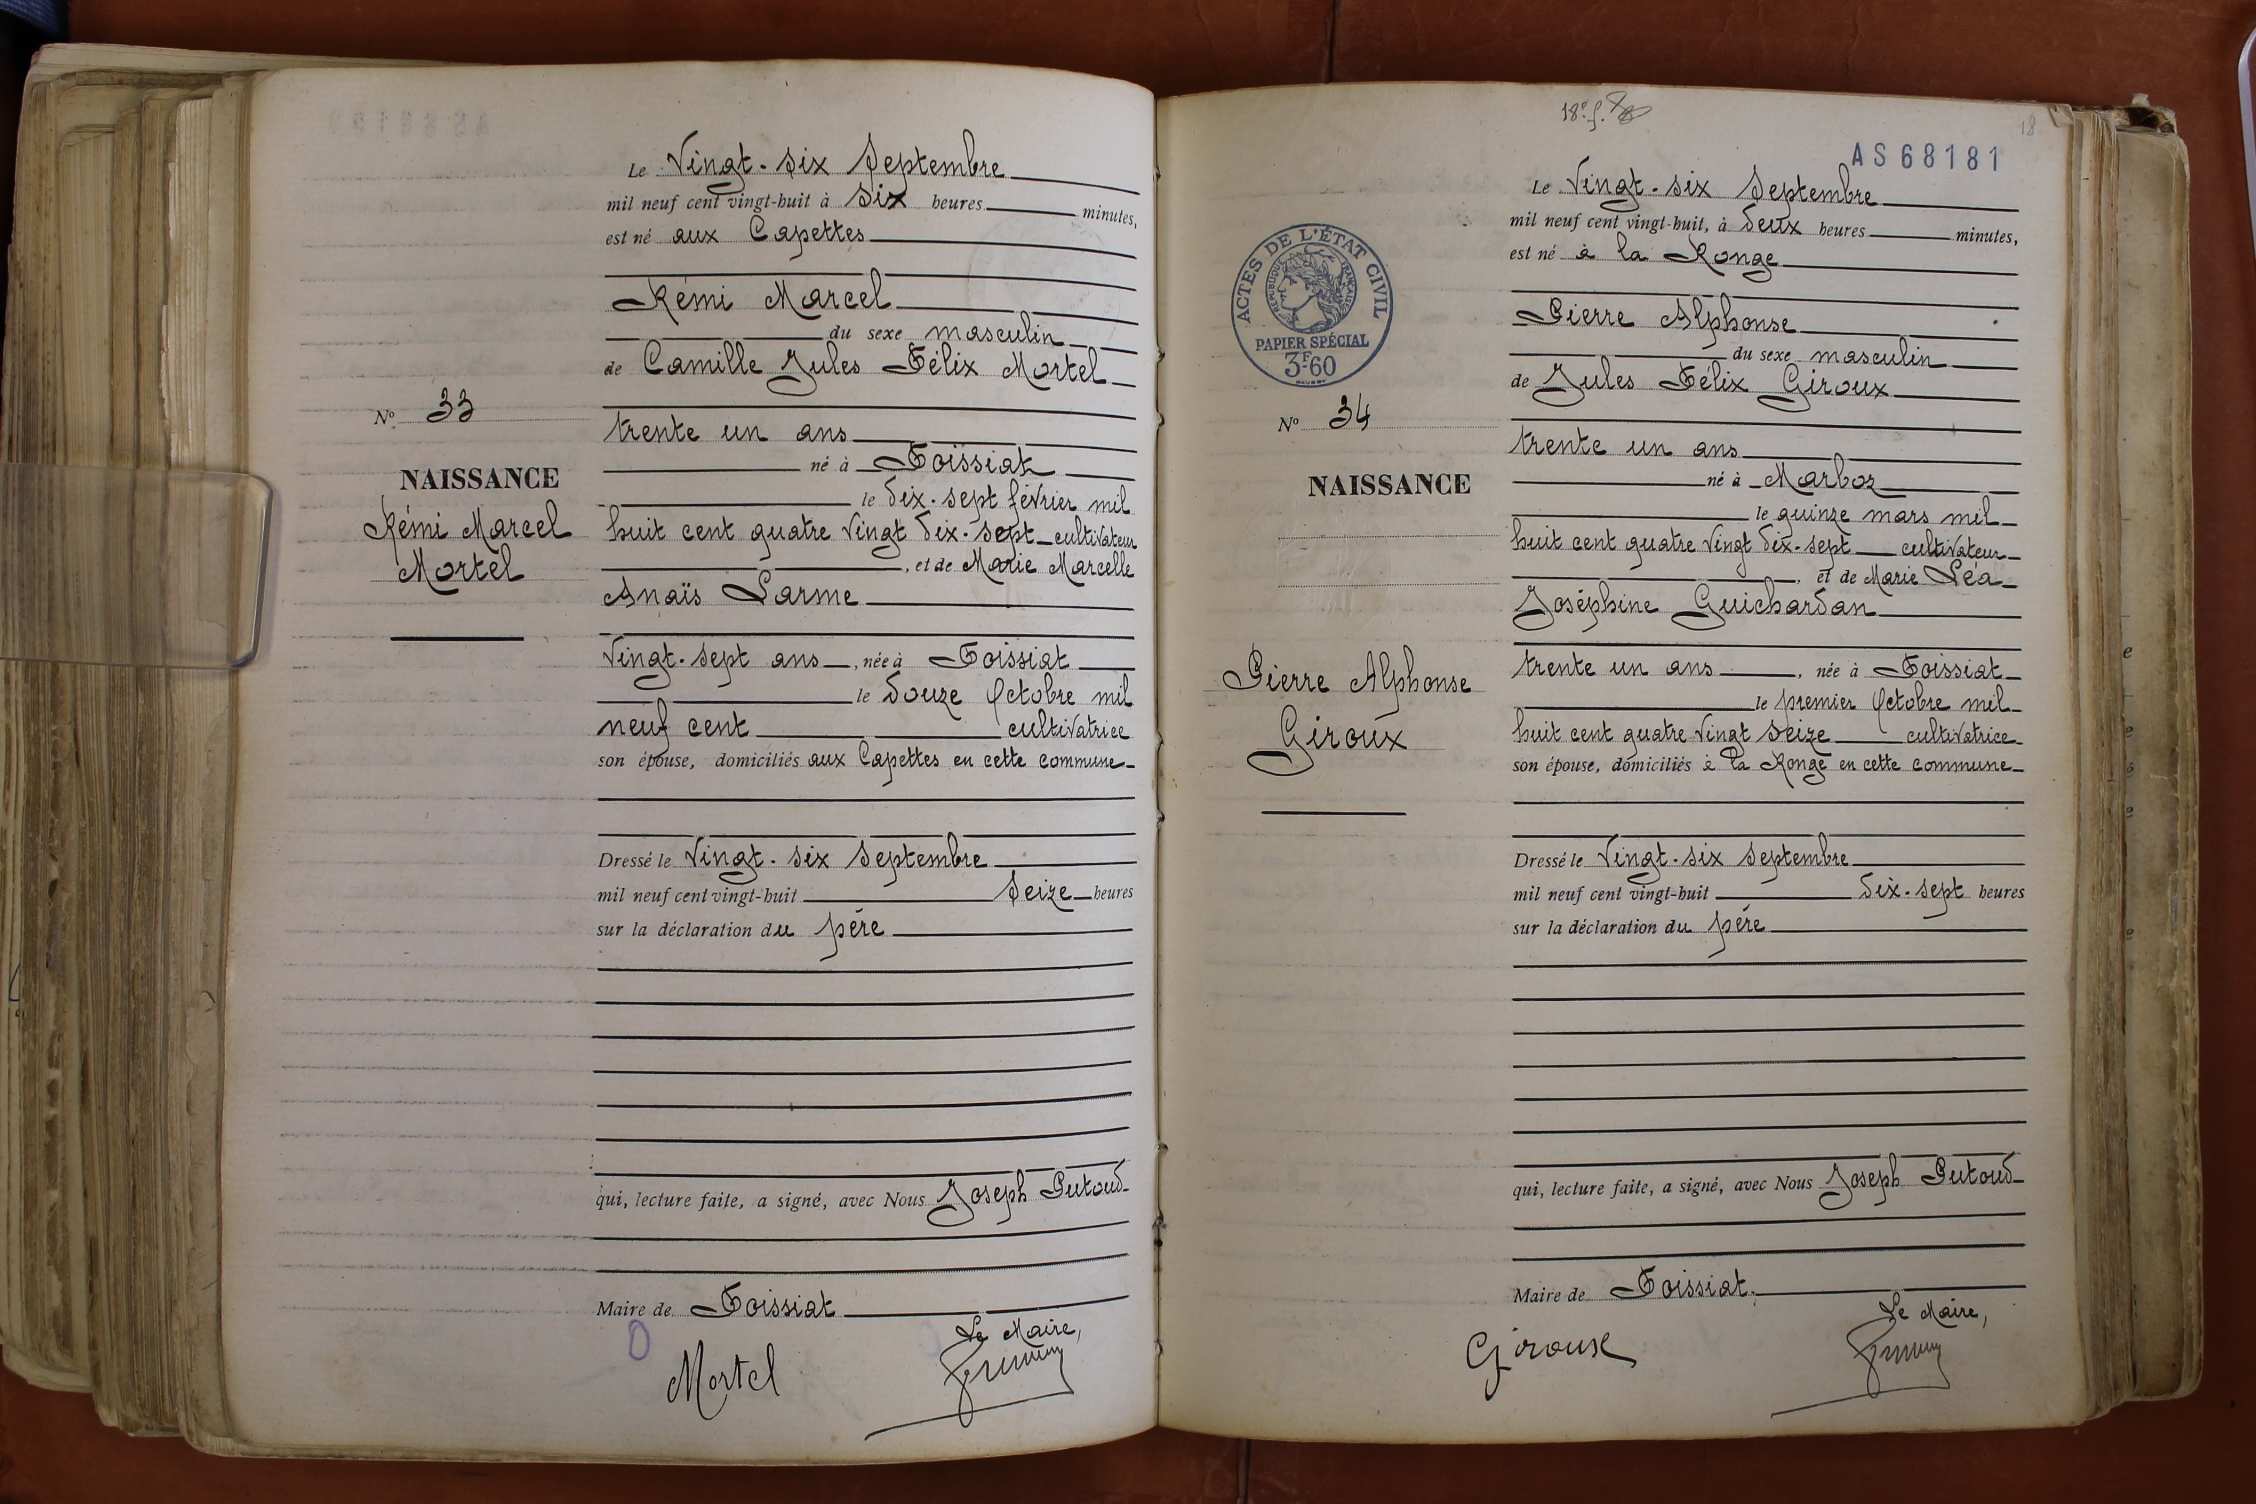 Le Vingt-six Septembre
mil neuf cent vingt-huit à six heures minutes,
est né aux Capettes
Rémi Marcel
du sexe masculin
de Camille Jules Félix Mortel
N° 33
trente un ans
né à Foissiat
NAISSANCE
le dix-sept février mil
Rémi Marcel
huit cent quatre vingt dix-sept cultivateur
Mortel
, et de Marie Marcelle
Anaïs Larme
vingt-sept ans, née à Foissiat
le douze Octobre mil
neuf cent cultivatrice
son épouse, domiciliés aux Capettes en cette commune
Dressé le Vingt-six Septembre
mil neuf cent vingt-huit seize heures
sur la déclaration du père
qui, lecture faite, a signé, avec Nous Joseph Putoud
Maire de Foissiat
Le Maire,
Mortel
18e f.
18
AS 68181
Le Vingt-six Septembre
mil neuf cent vingt-huit, à deux heures minutes,
est né à la Ronge
ACTES DE L'ÉTAT CIVIL
RÉPUBLIQUE FRANÇAISE
PAPIER SPÉCIAL
3F.60
Pierre Alphonse
du sexe masculin
de Jules Félix Giroux
N° 34
trente un ans
né à Marboz
NAISSANCE
le quinze mars mil
huit cent quatre vingt dix-sept cultivateur
, et de Marie Léa
Joséphine Guichardan
trente un ans, née à Foissiat
Pierre Alphonse
le premier Octobre mil
Giroux
huit cent quatre vingt seize cultivatrice
son épouse, domiciliés à la Ronge en cette commune
Dressé le Vingt-six Septembre
mil neuf cent vingt-huit dix-sept heures
sur la déclaration du père
qui, lecture faite, a signé, avec Nous Joseph Putoud
Maire de Foissiat.
Le Maire,
Giroux